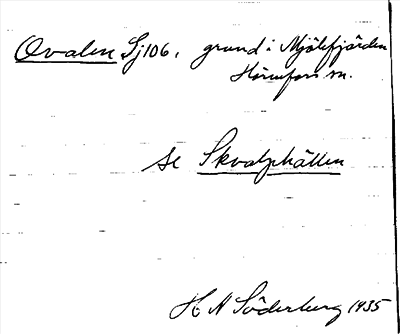 Ovalen Sj106, grund i Mjölefjärden
Hörnefors sn.
se Skvalphällen
H N Söderberg 1935